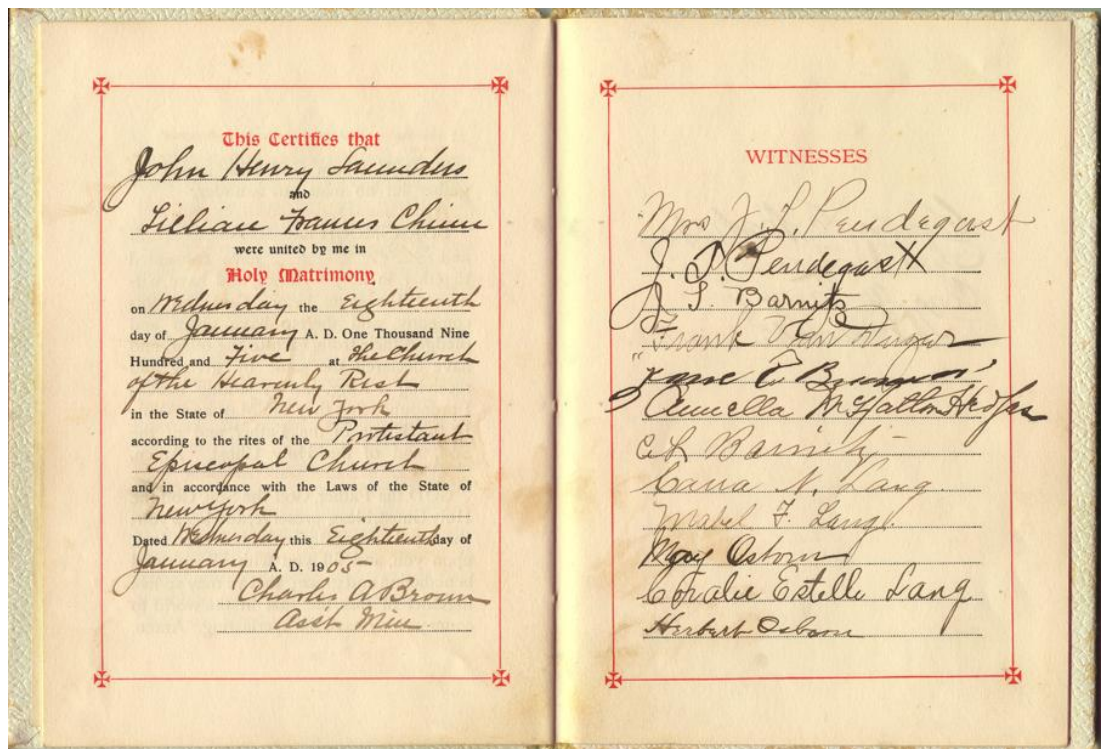 This Certifies that
John Henry Saunders
and
Lillian Frances Chinn
were united by me in
Holy Matrimony
on Wednesday the Eighteenth
day of January A. D. One Thousand Nine
Hundred and Five at the Church
of the Heavenly Rest
in the State of New York
according to the rites of the Protestant
Episcopal Church
and in accordance with the Laws of the State of
New York
Dated Wednesday this Eighteenth day of
January A. D. 1905
Charles A Brown
Asst Min
WITNESSES
Mrs J. L. Pendegast
J. L. Pendegast
J. S. Barnitz
Frank Van
E
Hedges
C L Barnitz
Carra N. Lang
Mabel F. Lang
May Osborn
Coralie Estelle Lang
Herbert Osborn